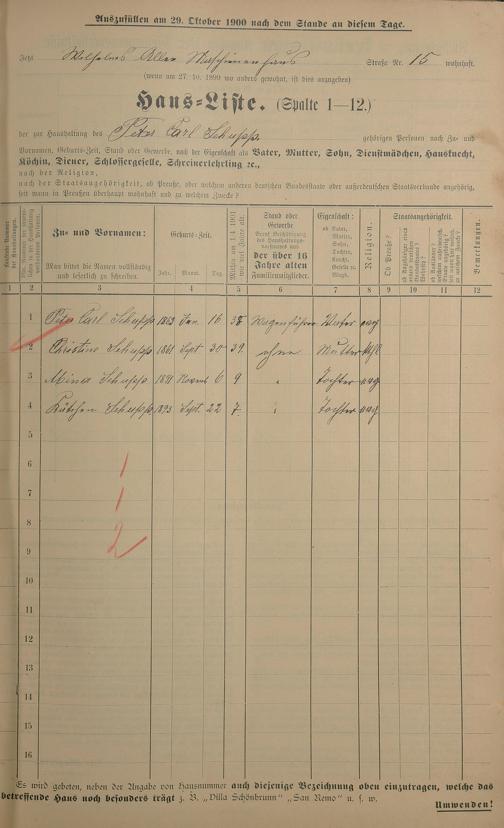 Auszufüllen am 29. Oktober 1900 nach dem Stande an diesem Tage.
Jetzt Wilhelms Allee Maschinenhaus Straße Nr. 15 wohnhaft.
(wenn am 27. 10. 1899 wo anders gewohnt, ist dies anzugeben)
Haus-Liste. (Spalte 1—12.)
der zur Haushaltung des Peter Carl Schupp gehörigen Personen nach Zu- und
Vornamen, Geburts-Zeit, Stand oder Gewerbe, nach der Eigenschaft als Vater, Mutter, Sohn, Dienstmädchen, Hausknecht,
Köchin, Diener, Schlossergeselle, Schreinerlehrling ec.,
nach der Religion,
nach der Staatsangehörigkeit, ob Preuße, oder welchem anderen deutschen Bundesstaate oder außerdeutschen Staatsverbande angehörig,
seit wann in Preußen überhaupt wohnhaft und zu welchem Zwecke?
Zu- und Vornamen:
Man bittet die Namen vollständig
und leserlich zu schreiben.
Geburts-Zeit.
Jahr. Monat. Tag.
Mithin am 1. 1. 1901
wie viel Jahre alt.
Stand oder
Gewerbe
der über 16
Jahre alten
Familienmitglieder.
Eigenschaft:
ob Vater,
Mutter,
Sohn,
Tochter,
Knecht,
Geselle u.
Magd.
Religion.
Staatsangehörigkeit.
Ob Preuße?
Bemerkungen.
1 2 3 4 5 6 7 8 9 10 11 12
1 Peter Carl Schupp 1862 Jan. 16 38 Wagenführer Vater evg
2 Christine Schupp 1861 Sept 30 39 ohne Mutter
3 Mina Schupp 1891 Novemb 6 9 " Tochter evg
4 Kätchen Schupp 1893 Sept. 22 7 " Tochter evg
5
6
7
8
9
10
11
12
13
14
15
16
1
1
2
Es wird gebeten, neben der Angabe von Hausnummer auch diejenige Bezeichnung oben einzutragen, welche das
betreffende Haus noch besonders trägt z. B. „Villa Schönbrunn" „San Remo" u. s. w.
Umwenden!